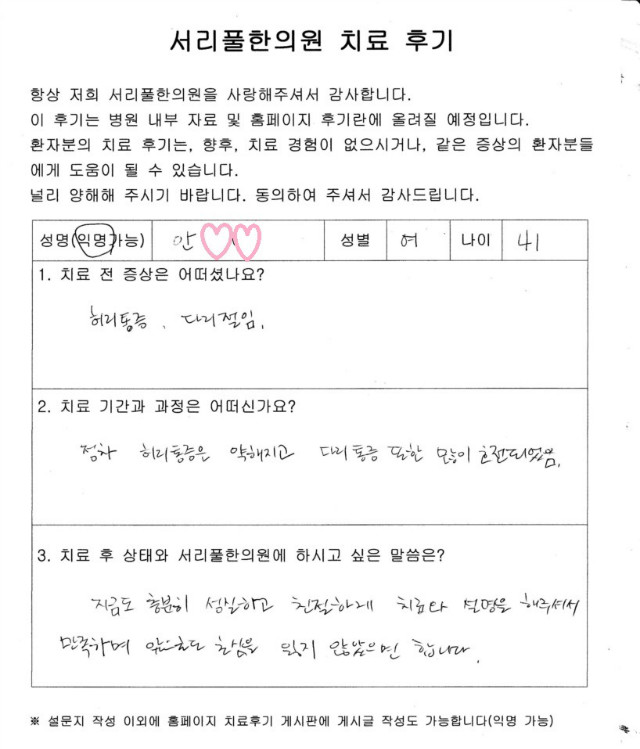 서리풀한의원 치료 후기
항상 저희 서리풀한의원을 사랑해주셔서 감사합니다.
이 후기는 병원 내부 자료 및 홈페이지 후기란에 올려질 예정입니다.
환자분의 치료 후기는, 향후, 치료 경험이 없으시거나, 같은 증상의 환자분들
에게 도움이 될 수 있습니다.
널리 양해해 주시기 바랍니다. 동의하여 주셔서 감사드립니다.
성명(익명가능) 안 성별 여 나이 41
1. 치료 전 증상은 어떠셨나요?
허리통증, 다리절임.
2. 치료 기간과 과정은 어떠신가요?
점차 허리통증은 약해지고 다리통증 또한 많이 호전되었음.
3. 치료 후 상태와 서리풀한의원에 하시고 싶은 말씀은?
지금도 충분히 성실하고 친절하게 치료와 설명을 해주셔서
만족하며 앞으로도 초심을 잃지 않았으면 합니다.
※ 설문지 작성 이외에 홈페이지 치료후기 게시판에 게시글 작성도 가능합니다(익명 가능)